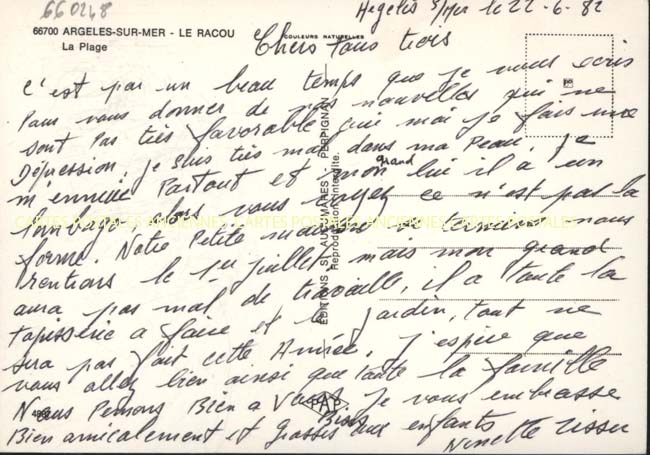 660248
66700 ARGELES-SUR-MER - LE RACOU
La Plage
COULEURS NATURELLES
Argeles s/Mer le 22-6-82
Chers tous trois
c'est par un beau temps que je vous écris
Pour vous donner de nos nouvelles qui ne
sont pas très favorable, qui moi je fais une
Dépression, je suis très mal dans ma Peau, je
m'ennuie Partout et mon grand lui il a un
lombago, alors vous voyez ce n'est pas la
forme. Notre Petite maison se termine nous
rentrons le 1er juillet, mais mon grand
aura pas mal de travaille, il a toute la
tapisserie a faire et le jardin, tout ne
sera pas fait cette Année, j'espère que
vous allez bien ainsi que toute la famille
Nous Pensons Bien a Vous. Je vous embrasse
Bien amicalement et Grosses Bises aux enfants
Ninette
EDITIONS
PERPIGNAN
Reproduction interdite.
CARTES POSTALES ANCIENNES - CARTES POSTALES ANCIENNES - CARTES POSTALES